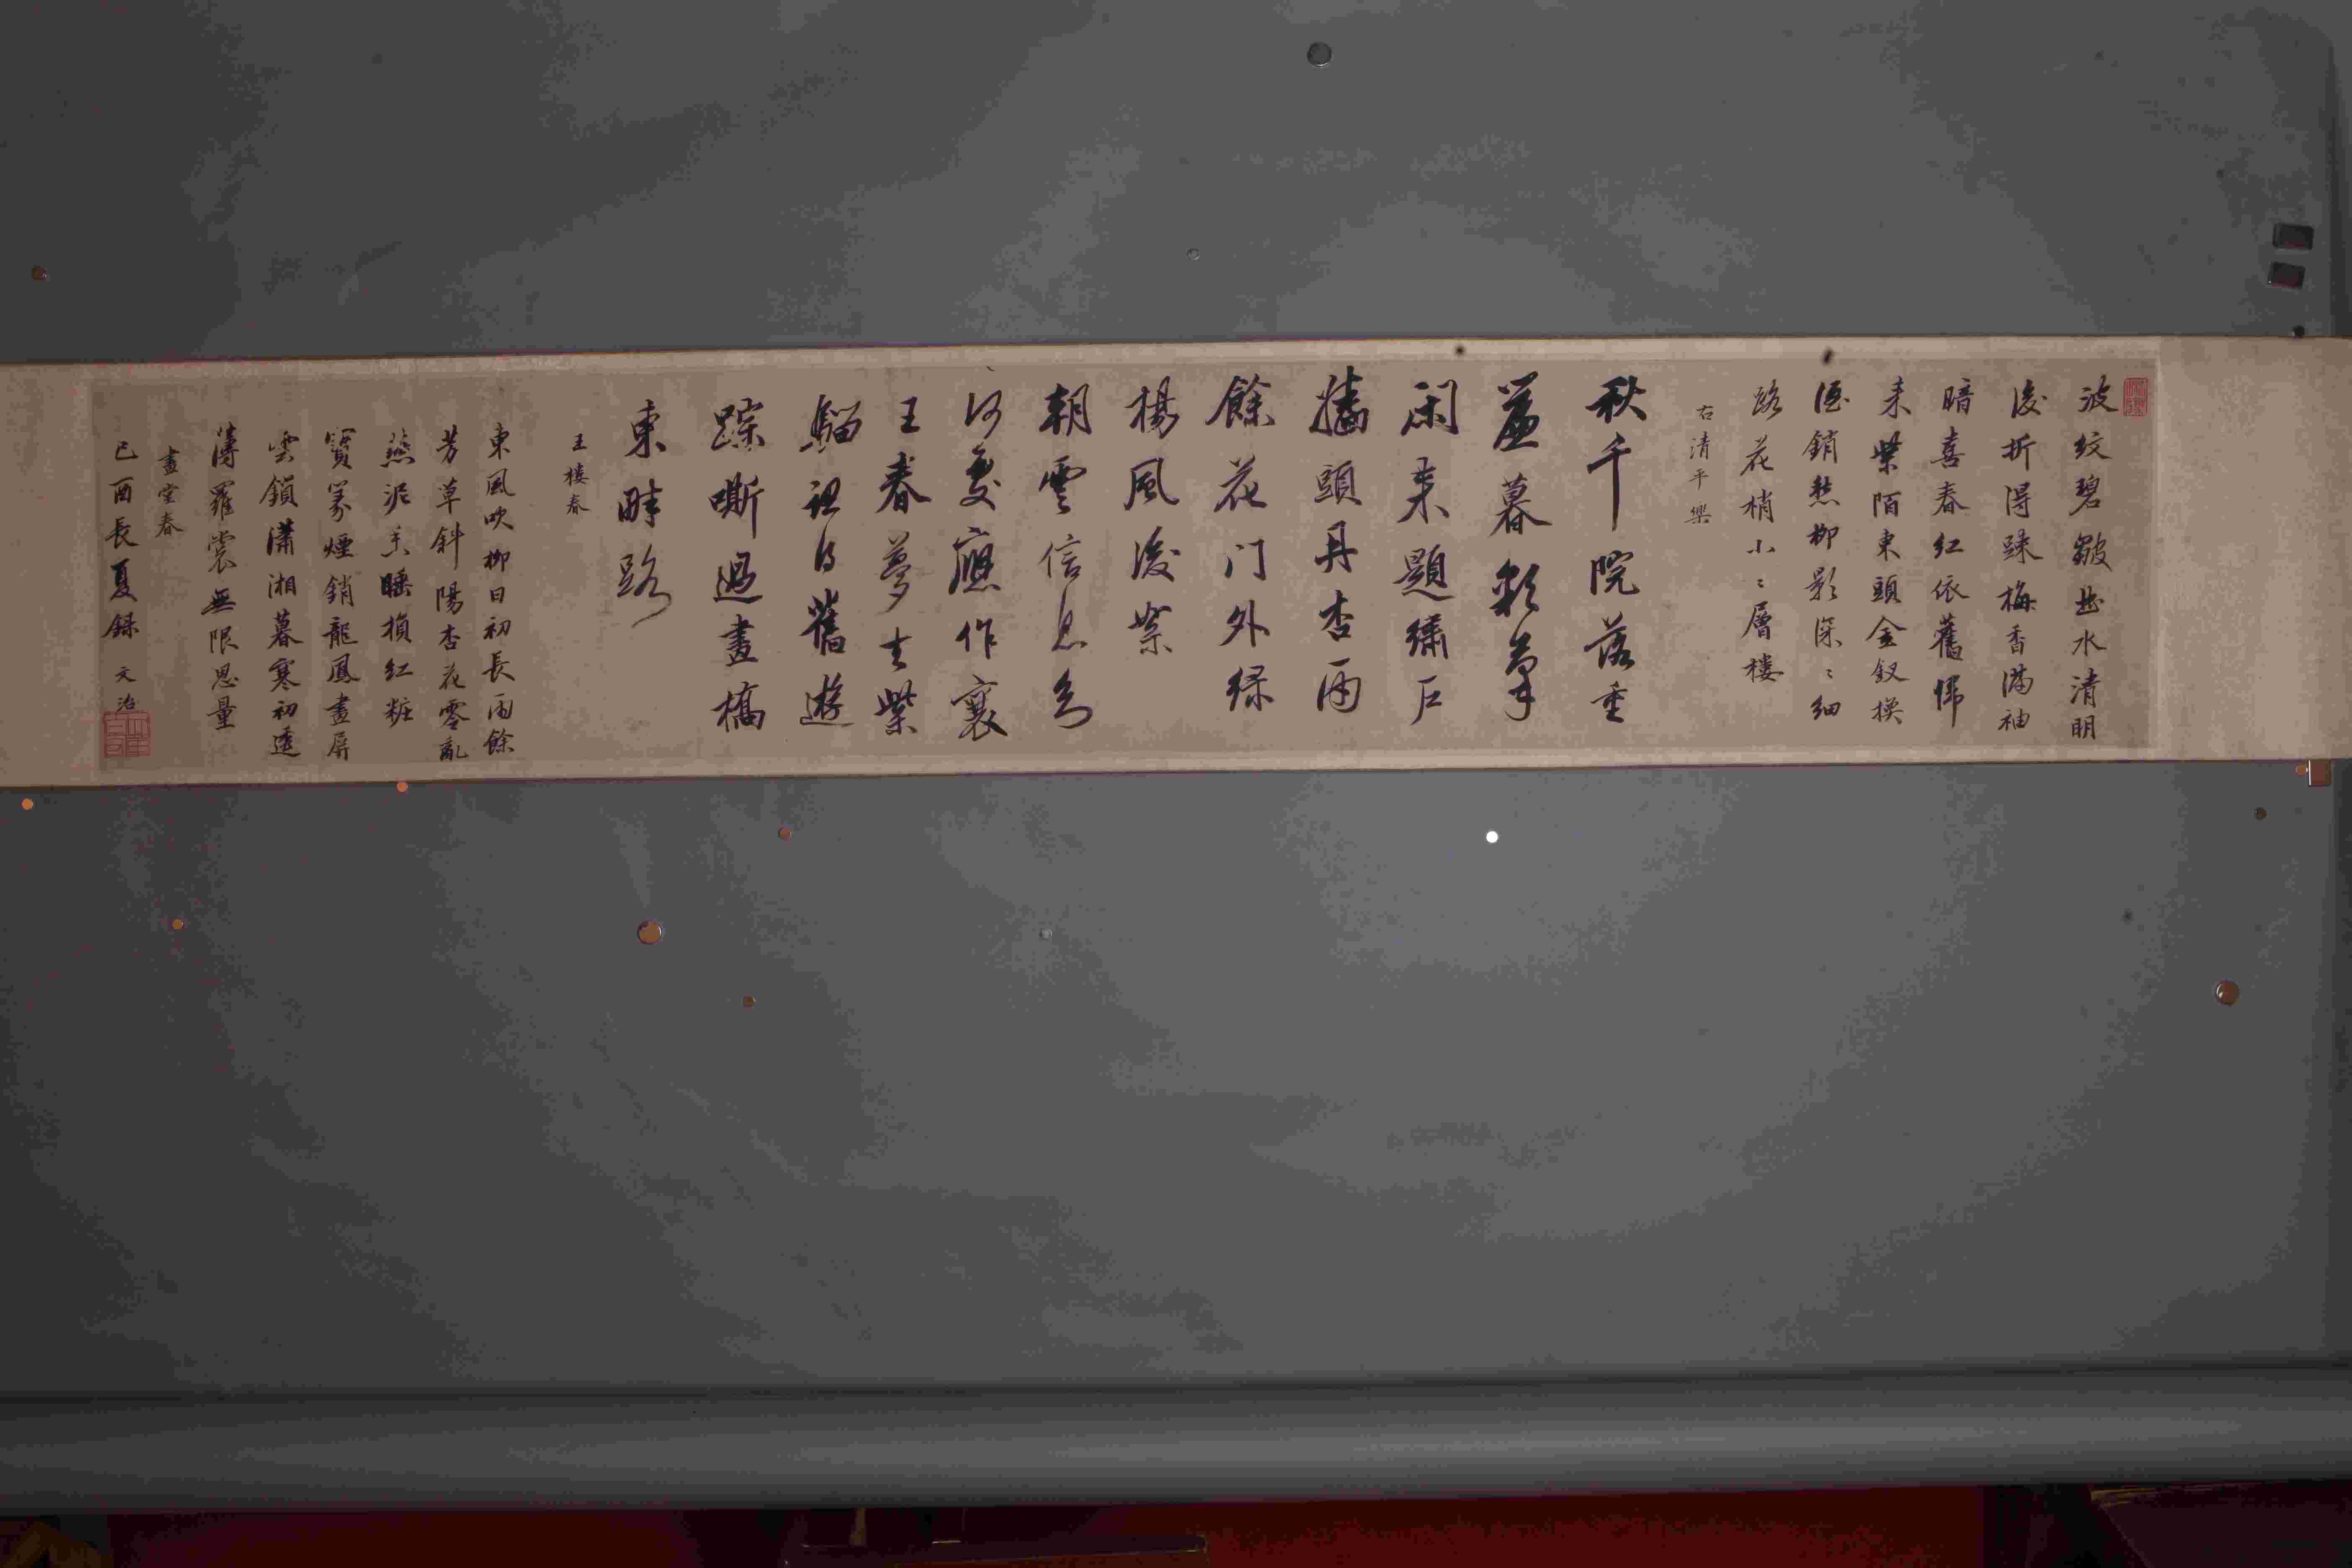 波紋碧皺曲水清明
後折得踈梅香滿袖
暗喜春紅依舊歸
来紫陌東頭金釵換
酒銷愁柳影深〻細
路花梢小〻層樓
右清平樂
秋千院落重
簾暮彩筆
闲来題繡户
墻頭丹杏雨
餘花门外绿
楊風後絮
朝雲信息知
何處應作襄
王春夢去紫
騮認得舊遊
蹤嘶過畫橋
東畔路
玉樓春
東風吹柳日初長雨餘
芳草斜陽杏花零亂
燕泥香睡損紅粧
寶篆煙銷龍鳳畫屏
雲鎖瀟湘暮寒初透
薄羅裳無限思量
畫堂春
己酉長夏録 文治